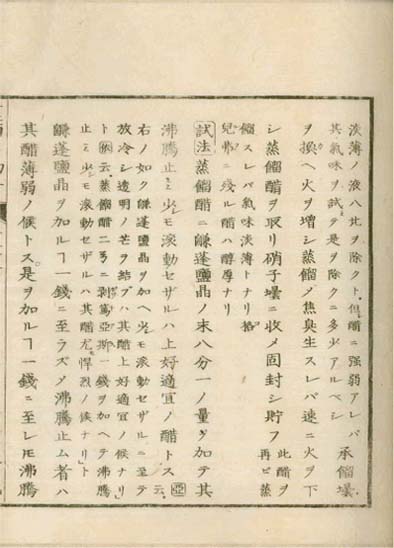 淡薄ノ液ハ此ヲ除クト但醋ニ強弱アレバ
其氣味ヲ試ミ是ヲ除クニ多少アルベシ 承餾壜
ヲ換ヘ火ヲ増シ蒸餾ノ焦臭生スレバ速ニ火ヲ下
シ蒸餾醋ヲ取リ硝子壜ニ收メ固封シ貯フ 此醋ヲ
再ヒ蒸
餾スレバ氣味淡薄トナリ格
兒弗ニ殘ル醋ハ醇厚ナリ
試法蒸餾醋ニ鹻蓬鹽晶ノ末八分一ノ量ヲ加テ其
沸騰止ミ少シモ滾動セザルハ上好適宜ノ醋トス 亞云
右ノ如ク鹻蓬鹽晶ヲ加ヘ少モ滾動セザルニ至テ
放冷シ透明ノ芒ヲ結ブハ其醋上好適宜ノ候ナリ
ト 云蒸餾醋二 ニ剥篤亞斯一錢ヲ加ヘテ沸騰
止ミ少シモ滾動セザルハ其醋尤悍烈ノ候ナリト
鹻蓬鹽晶ヲ加ルヿ一錢ニ至ラズノ沸騰止ム者ハ
其醋薄弱ノ候トス是ヲ加ルヿ一錢ニ至レ𪜈沸騰